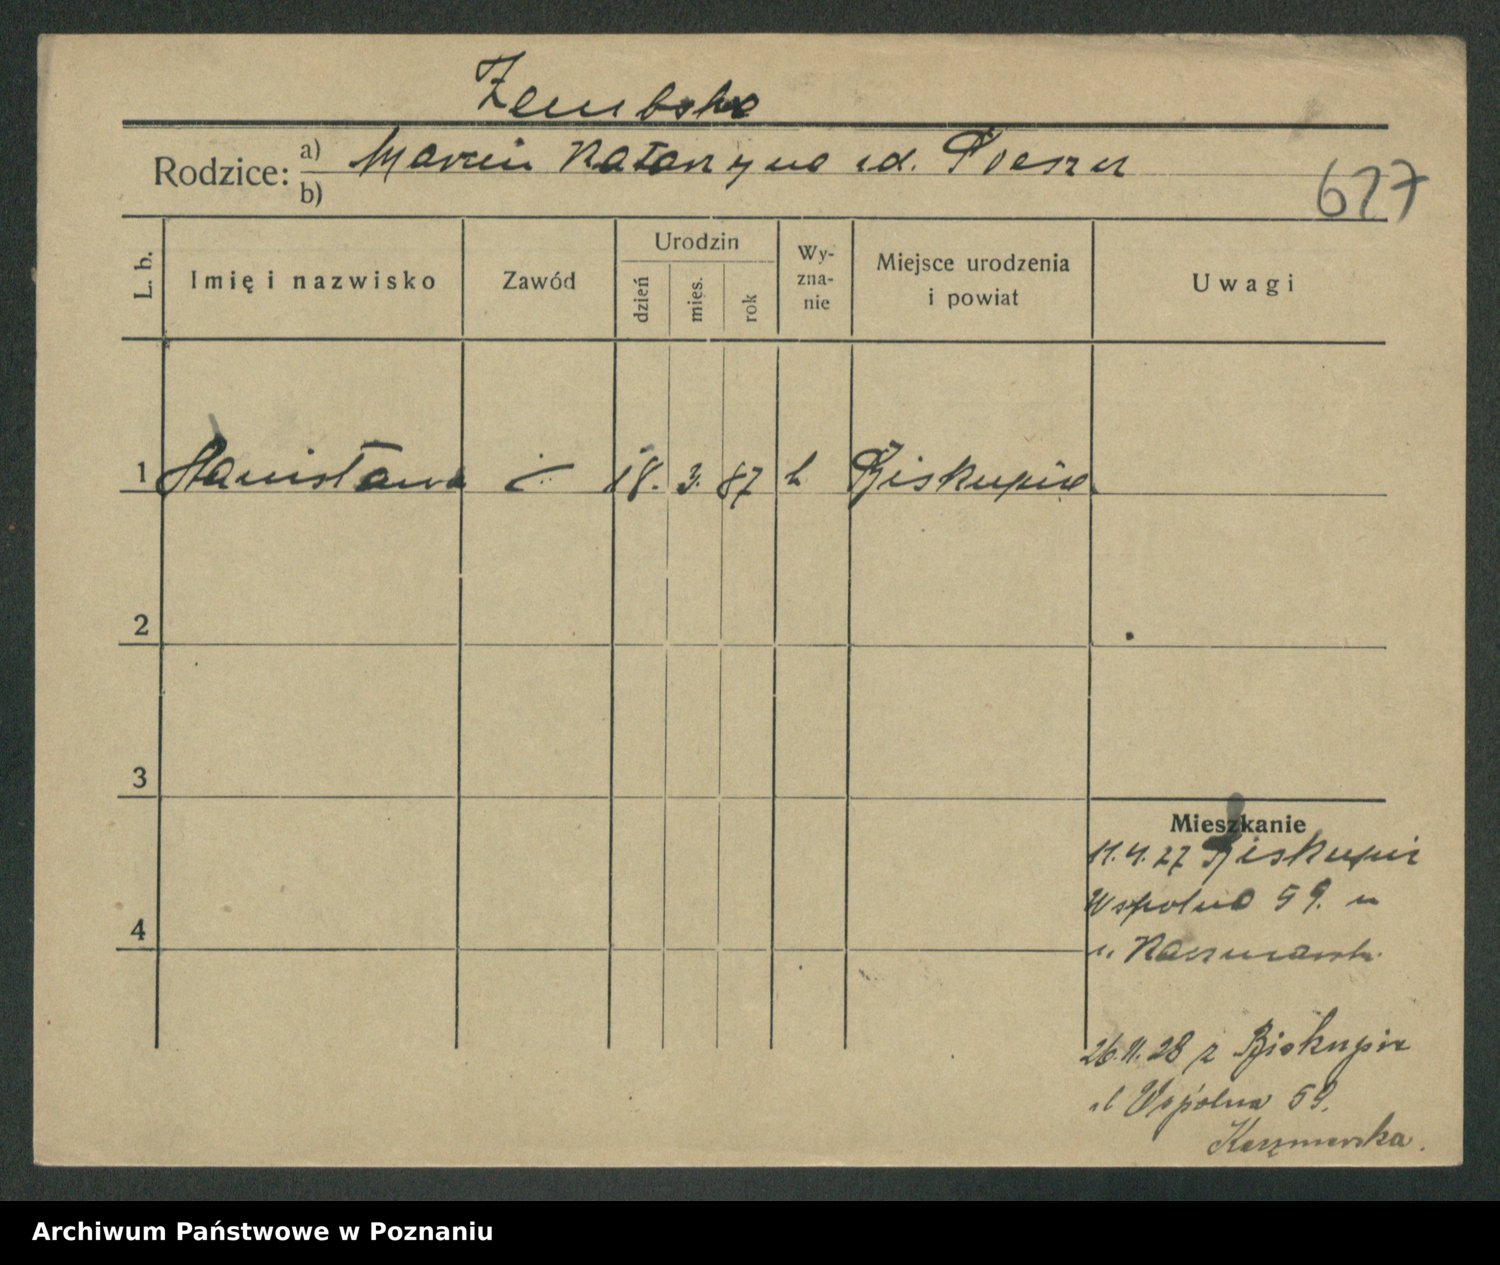 Zembska
Rodzice: a) Marcin Katarzyna
b)
627
L. b.
Imię i nazwisko
Zawód
Urodzin
dzień
mies.
rok
Wy-
zna-
nie
Miejsce urodzenia
i powiat
Uwagi
1 Stanisława 18. 3. 87 Biskupice
2
3
4
Mieszkanie
Biskupice
Wspolna 59.
26.11.28 z Biskupic
Wspólna 59.
Kaczmarska.
Archiwum Państwowe w Poznaniu